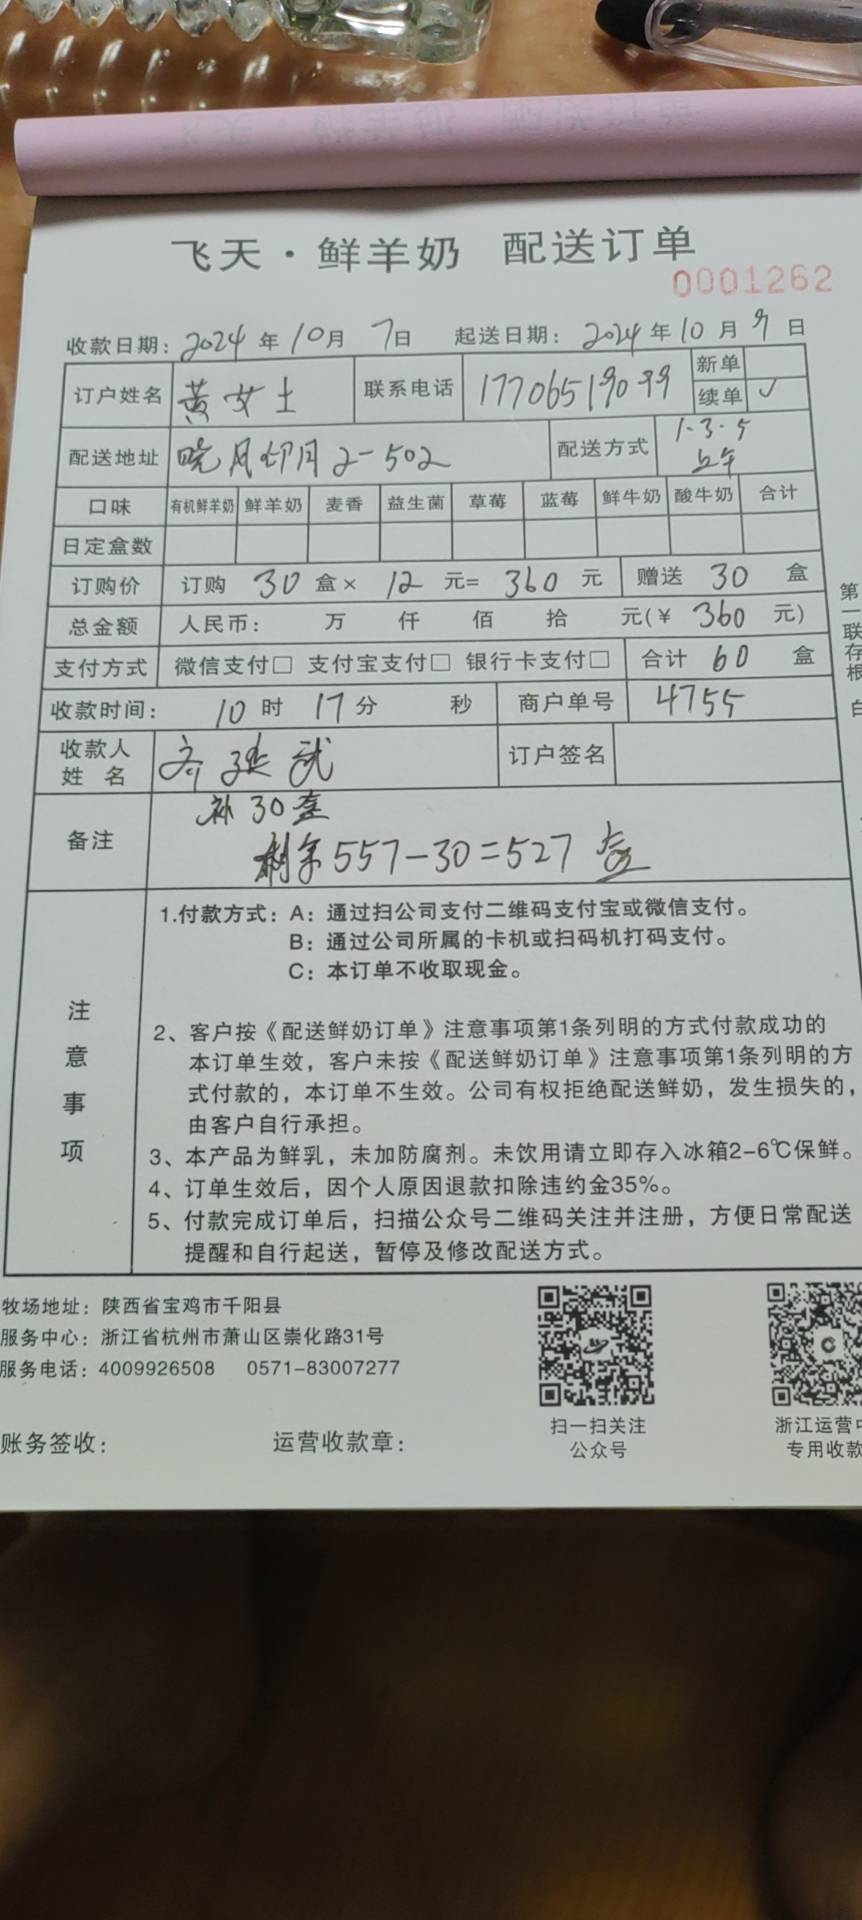 飞天·鲜羊奶 配送订单
0001262
收款日期: 2024年10月7日 起送日期: 2024年10月9日
订户姓名 黄女士 联系电话 17706519099 新单
续单 ✓
配送地址 晓风印月2-502 配送方式 1·3·5 上午
口味 有机鲜羊奶 鲜羊奶 麦香 益生菌 草莓 蓝莓 鲜牛奶 酸牛奶 合计
日定盒数
订购价 订购 30 盒× 12 元= 360 元 赠送 30 盒
总金额 人民币: 万 仟 佰 拾 元(¥ 360 元)
支付方式 微信支付□ 支付宝支付□ 银行卡支付□ 合计 60 盒
收款时间: 10时17分 秒 商户单号 4755
收款人姓名 齐延武 订户签名
备注 补30盒
剩余557-30=527盒
注意事项
1.付款方式: A: 通过扫公司支付二维码支付宝或微信支付。
B: 通过公司所属的卡机或扫码机打码支付。
C: 本订单不收取现金。
2、客户按《配送鲜奶订单》注意事项第1条列明的方式付款成功的
本订单生效，客户未按《配送鲜奶订单》注意事项第1条列明的方
式付款的，本订单不生效。公司有权拒绝配送鲜奶，发生损失的，
由客户自行承担。
3、本产品为鲜乳，未加防腐剂。未饮用请立即存入冰箱2-6℃保鲜。
4、订单生效后，因个人原因退款扣除违约金35%。
5、付款完成订单后，扫描公众号二维码关注并注册，方便日常配送
提醒和自行起送，暂停及修改配送方式。
第一联存根 白
牧场地址: 陕西省宝鸡市千阳县
服务中心: 浙江省杭州市萧山区崇化路31号
服务电话: 4009926508 0571-83007277
扫一扫关注
公众号
浙江运营中
专用收款
账务签收: 运营收款章: